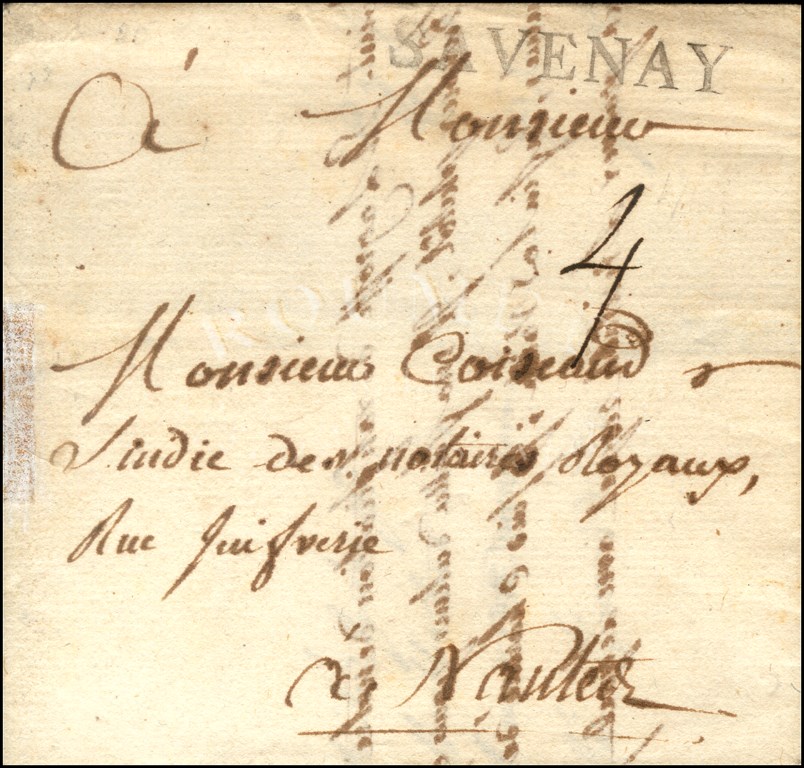 SAVENAY
À Monsieur
4
ROUMET
Monsieur
Sindic des notaires Royaux,
Rue Juifverie
à Nantes